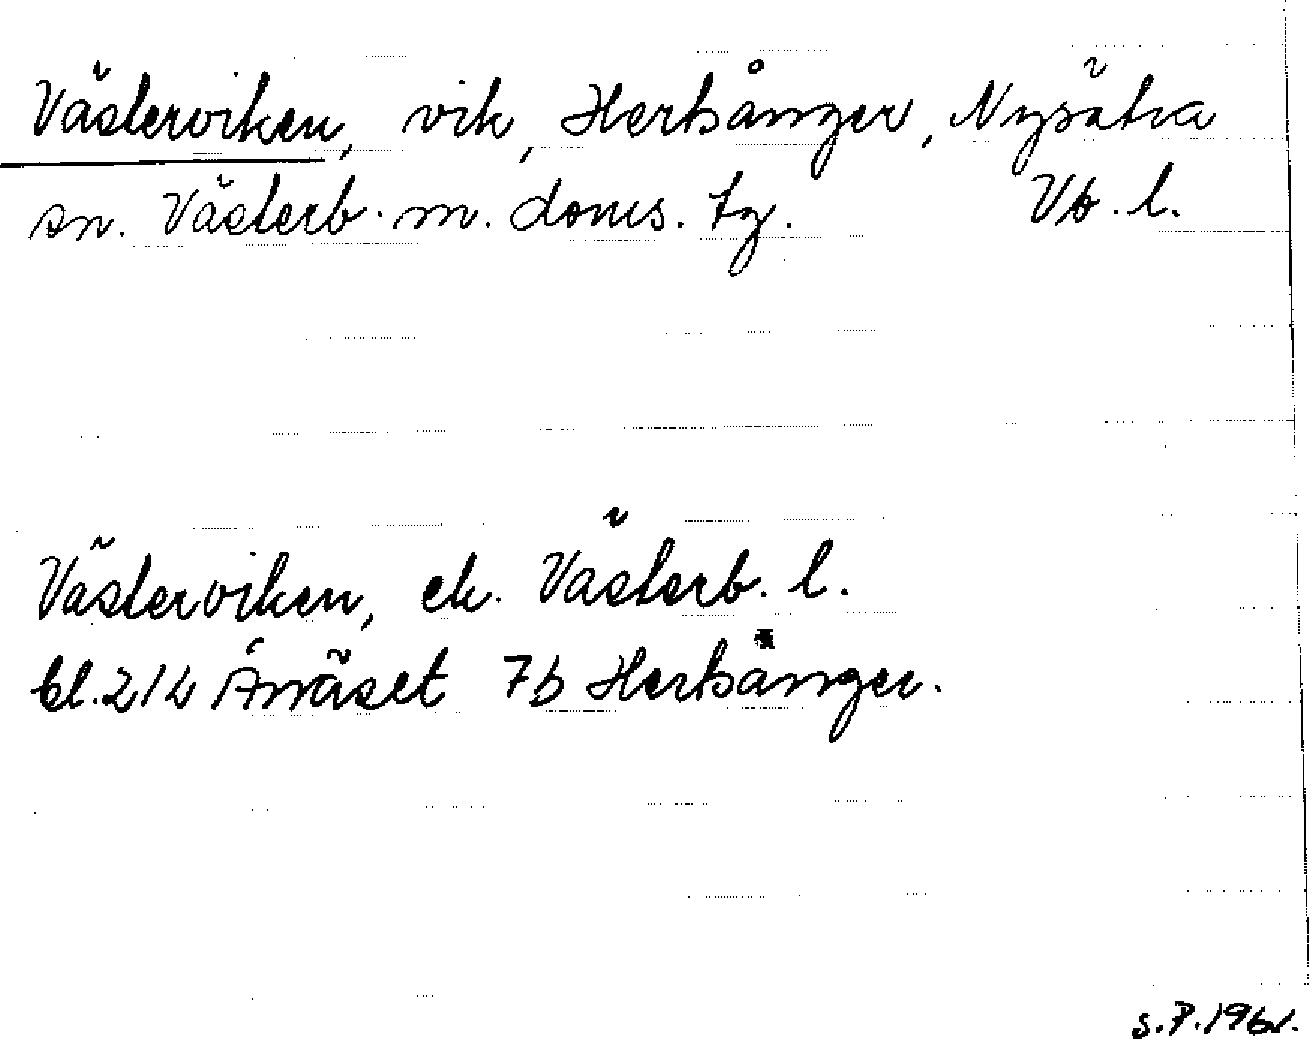 Västerviken, vik, Herrsånger, Nysätra
sn. Västerb. m. doms. tg. Vb. l.
Västerviken, ek. Västerb. l.
bl. 21 L Ånäset 7b Hertsånger.
s. P. 1961.